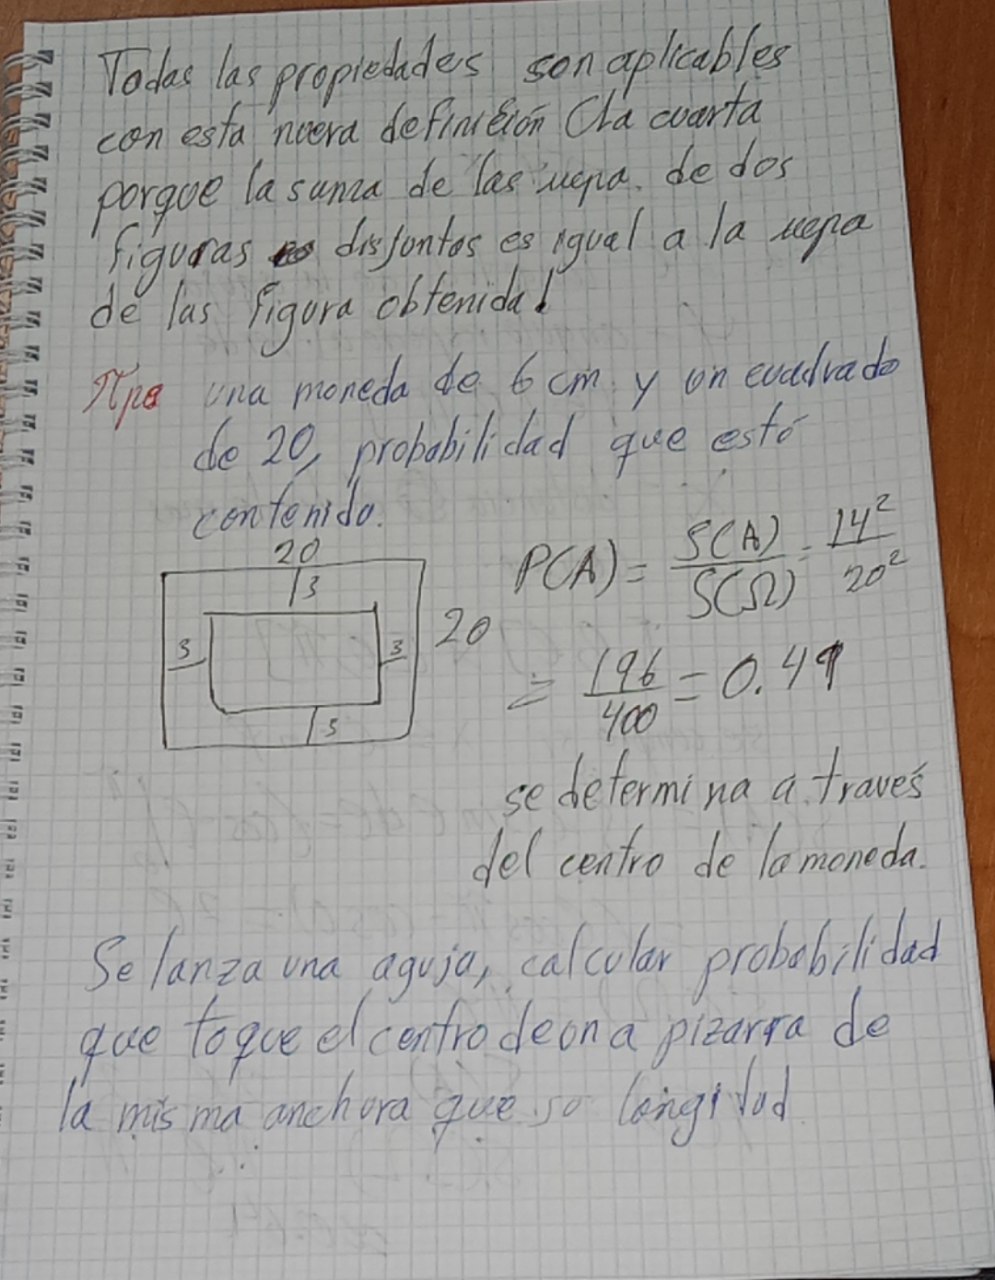 Todas las propiedades son aplicables
con esta nueva definición (La cuarta
porque la suma de las мера. de dos
figuras disjontos es igual a la мера
de las figura obtenida)
Прe una moneda de 6 cm y un cuadrado
de 20, probabilidad que esté
contenido.
20
3
3
3
3
20
P(A) = S(A)/S(Ω) = 14²/20²
= 196/400 = 0.49
se determina a través
del centro de la moneda.
Se lanza una aguja, calcular probabilidad
que toque el centro de una pizarra de
la misma anchura que su longitud